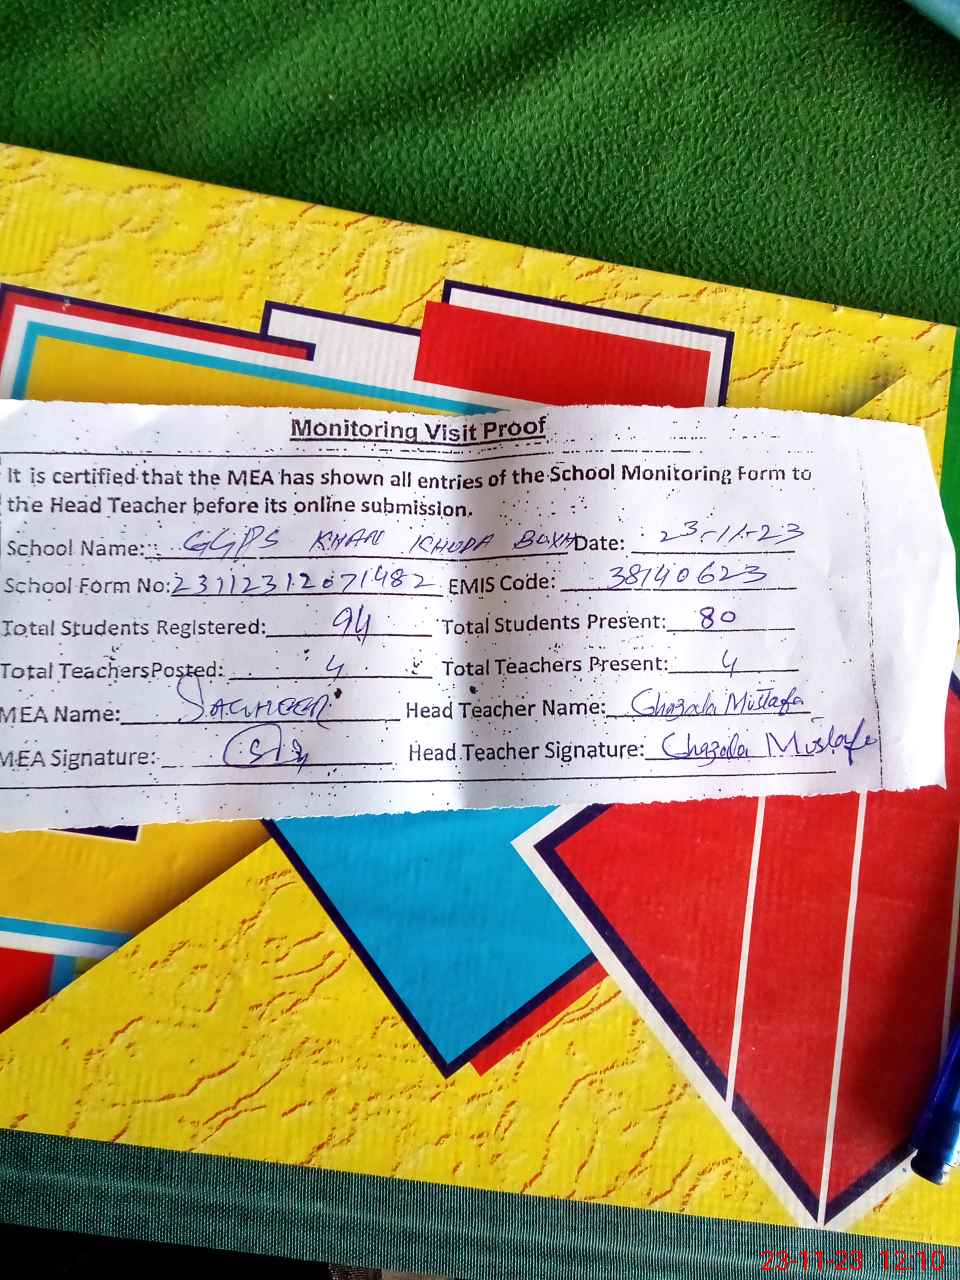 Monitoring Visit Proof
It is certified that the MEA has shown all entries of the School Monitoring Form to
the Head Teacher before its online submission.
School Name: GGPS KHAN KHUDA BUXH Date: 23-11-23
School Form No: 23112312071482 EMIS Code: 38140623
Total Students Registered: 94 Total Students Present: 80
Total TeachersPosted: 4 Total Teachers Present: 4
MEA Name: Head Teacher Name: Ghazala Mustafa
MEA Signature: Head Teacher Signature: Ghazala Mustafa
23-11-23 12:10